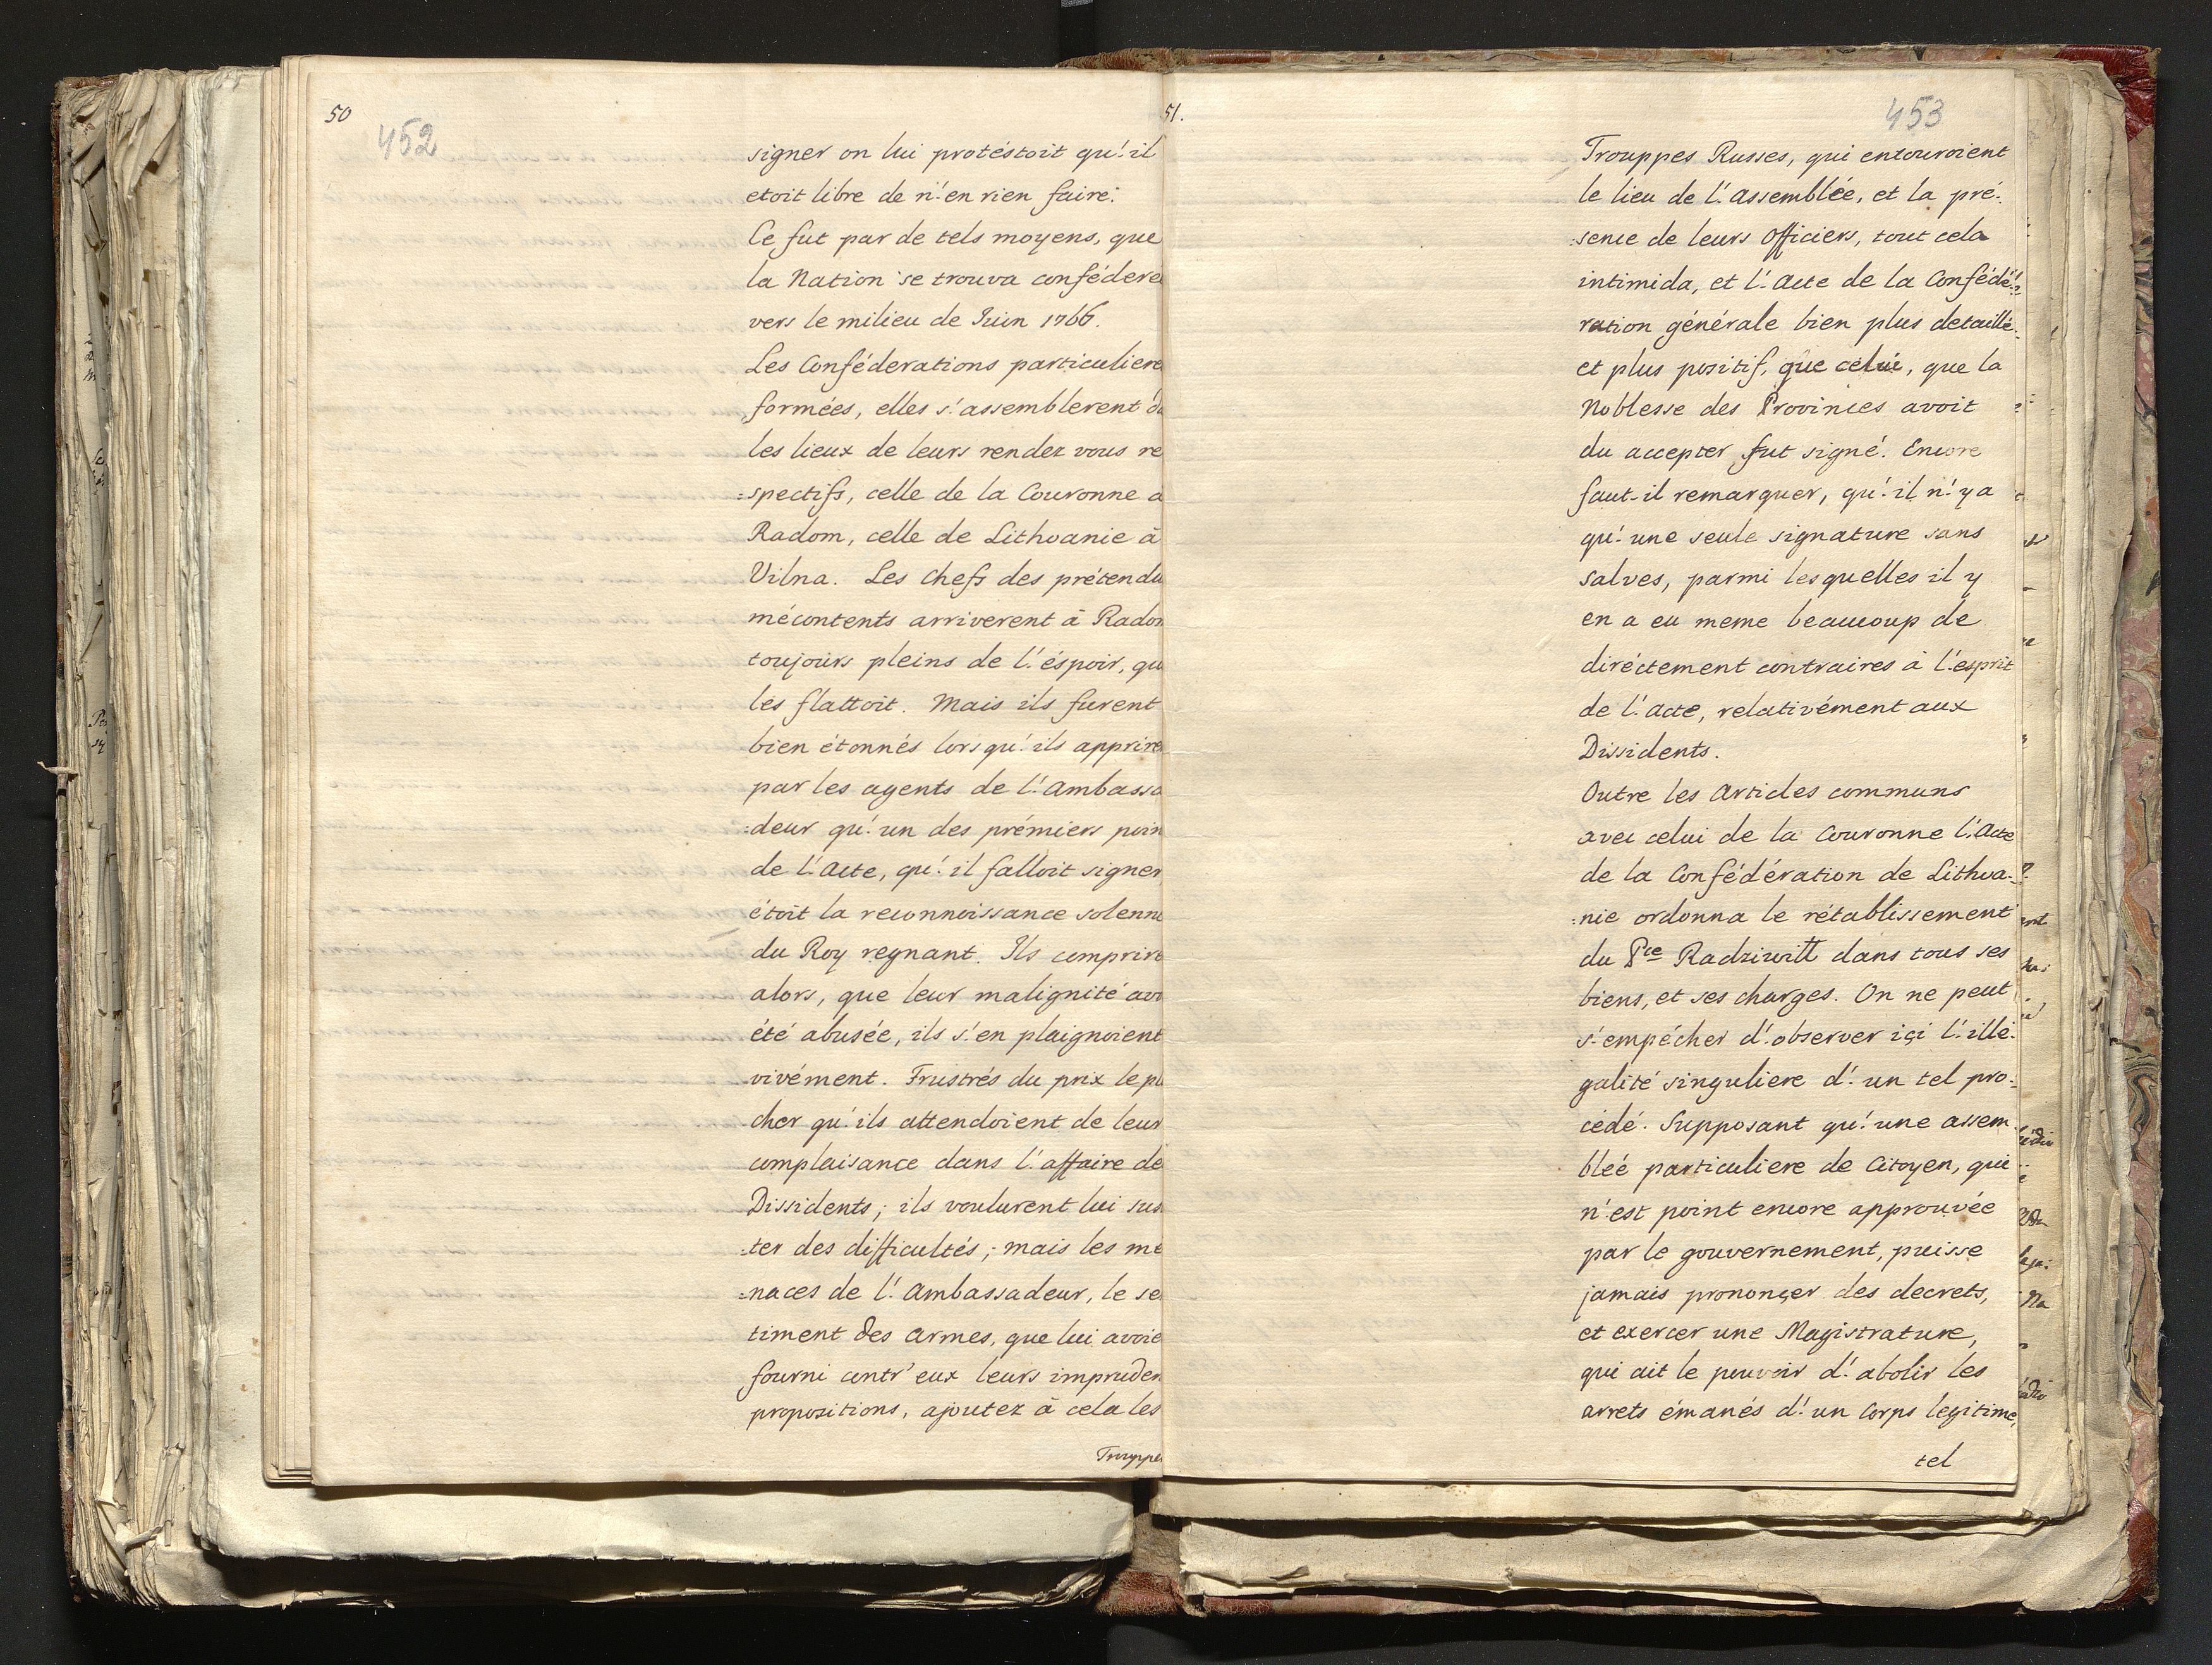 50
452
signer on lui protéstoit qu'il
etoit libre de n'en rien faire.
Ce fut par de tels moyens, que
la Nation se trouva conféderé
vers le milieu de Juin 1766.
Les Conféderations particuliere
formées, elles s'assemblerent d
les lieux de leurs rendez vous re
=spectifs, celle de la Couronne a
Radom, celle de Lithvanie à
Vilna. Les Chefs des prétendu
mécontents arriverent à Radom
toujours pleins de l'éspoir, qu
les flattoit. Mais ils furent
bien étonnés lorsqu'ils apprire
par les agents de l'Ambassa
=deur qu'un des prémiers poin
de l'Acte, qu'il falloit signer
étoit la reconnoissance solenne
du Roy regnant. Ils comprire
alors, que leur malignité avo
été abusée, ils s'en plaignoient
vivément. Frustrés du prix le pl
cher qu'ils attendoient de leur
complaisance dans l'affaire de
Dissidents; ils voulurent lui sus
=ter des difficultés; mais les me
=naces de l'Ambassadeur, le se
timent des Armes, que lui avoie
fourni contr'eux leurs impruden
propositions, ajoutez à cela les
Trouppe
51.
453
Trouppes Russes, qui entouroient
le lieu de l'Assemblée, et la pré=
=sence de leurs Officiers, tout cela
intimida, et l'Acte de la Confédé=
ration générale bien plus detaillé
et plus positif, que celui, que la
Noblesse des Provinces avoit
du accepter fut signé. Encore
faut-il remarquer, qu'il n'y a
qu'une seule signature sans
salves, parmi lesquelles il y
en a eu meme beaucoup de
diréctement contraires à l'esprit
de l'acte, relativément aux
Dissidents.
Outre les Articles communs
avec celui de la Couronne l'Acte
de la Confédération de Lithva=
=nie ordonna le rétablissement
du Pce Radziwill dans tous ses
biens, et ses charges. On ne peut
s'empécher d'observer içi l'illé=
galité singuliere d'un tel pro=
cédé. Supposant qu'une assem
bleé particuliere de Citoyen, qui
n'est point encore approuvée
par le gouvernement, puisse
jamais prononçer des decrets,
et exercer une Magistrature,
qui ait le pouvoir d'abolir les
arrets émanés d'un Corps legitime,
tel